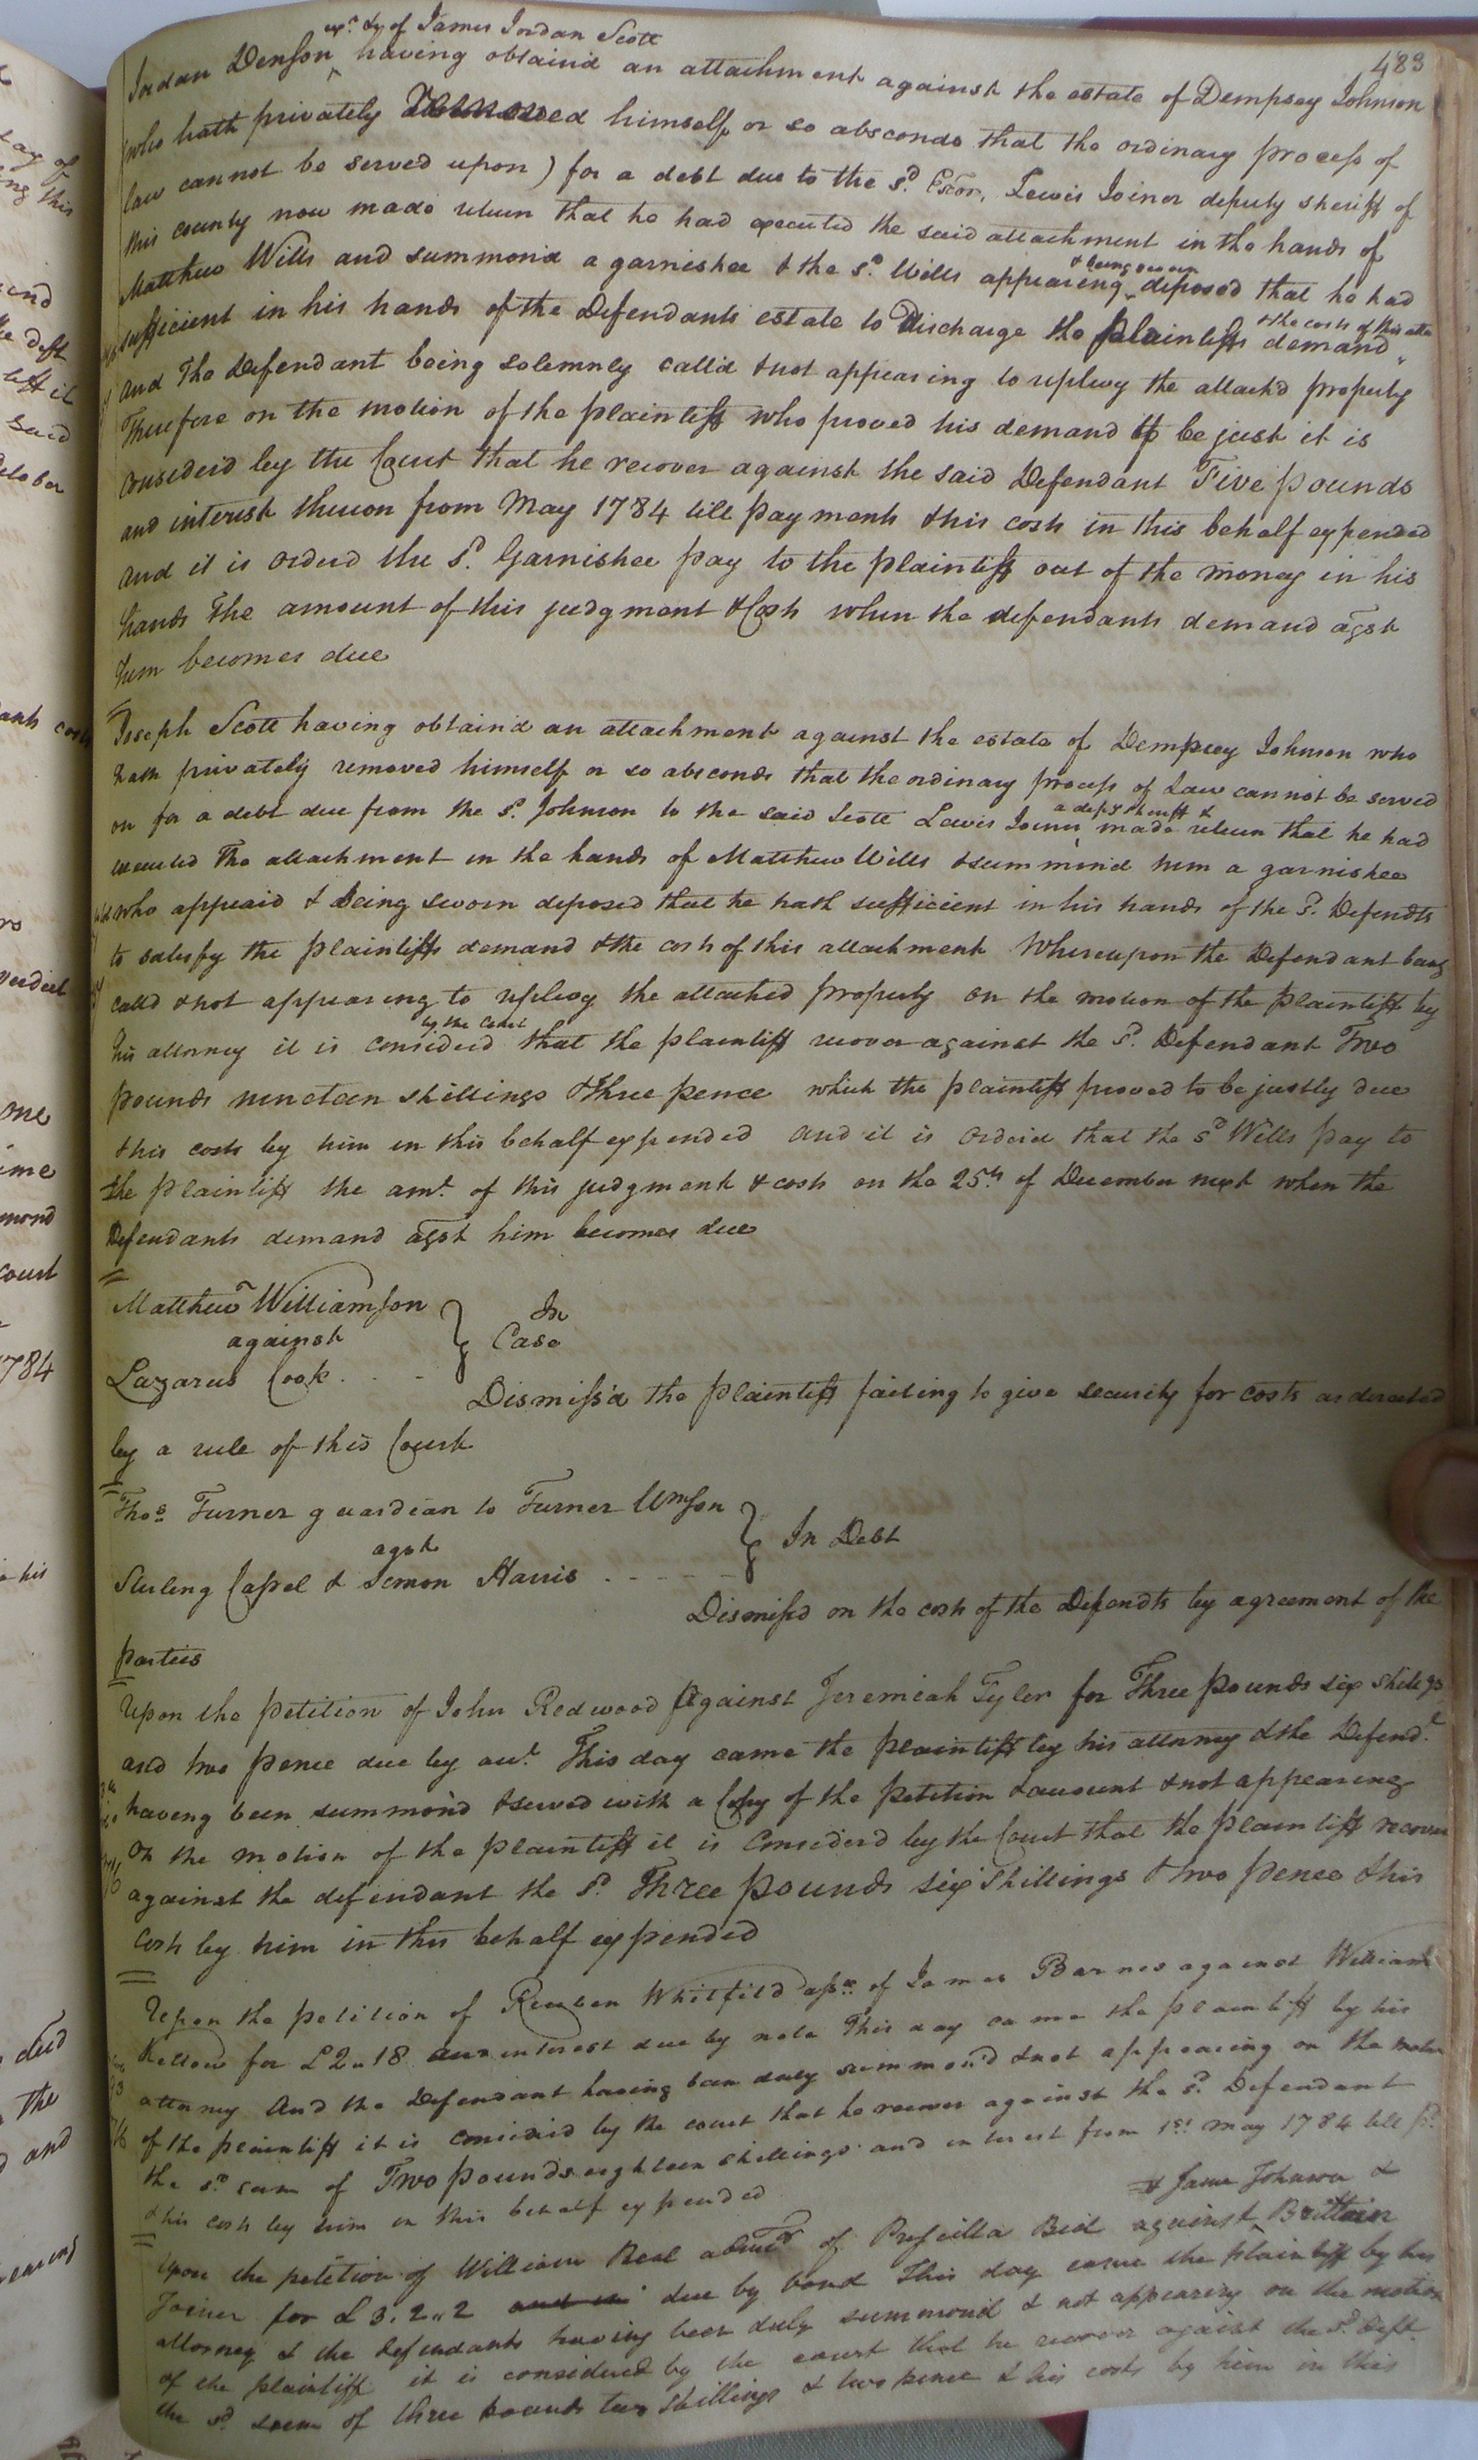 483
exr. &c of James Jordan Scott
Jordan Denson having obtaind an attachment against the estate of Dempsey Johnson
(who hath privately Removed himself or so absconds that the ordinary process of
law cannot be served upon) for a debt due to the sd. Exor, Lewis Joiner deputy sheriff of
this county now made return that he had executed the said attachment in the hands of
Matthew Wills and summond a garnishee & the sd. Wills appearing & being sworn deposed that he had
sufficient in his hands of the Defendants estate to Discharge the plaintiffs demand & the costs of this atta
and The Defendant being solemnly calld & not appearing to replevy the attachd property
Therefore on the motion of the plaintiff who proved his demand to be just it is
considerd by the Court that he recover against the said Defendant Five pounds
and interest thereon from May 1784 till payment & his costs in this behalf expended
and it is orderd the sd. Garnishee pay to the plaintiff out of the money in his
hands The amount of this judgment & Costs when the defendants demand agst
him becomes due
Joseph Scott having obtaind an attachment against the estate of Dempsey Johnson who
hath privately removed himself or so absconds that the ordinary process of Law cannot be served
on for a debt due from the sd. Johnson to the said Scott Lewis Joiner a depy sheriff & made return that he had
executed The attachment in the hands of Matthew Wills & summond him a garnishee
who appeard & being sworn deposed that he hath sufficient in his hands of the sd. Defendts
to satisfy the plaintiffs demand & the costs of this attachment Whereupon the Defendant being
calld & not appearing to replevy the attached property on the motion of the plaintiff by
his attorney it is considerd by the Court that the plaintiff recover against the sd. Defendant Two
pounds nineteen shillings & three pence which the plaintiff proved to be justly due
& his costs by him in this behalf expended and it is orderd that the sd Wills pay to
the plaintiff the amt. of this judgment & costs on the 25th of December next when the
Defendants demand agst him becomes due
Matthew Williamson
against
Lazarus Cook . . -
In
Case
Dismiss'd the plaintiff failing to give security for costs as directed
by a rule of this Court
Thos. Turner guardian to Turner Wmson
agst
Sterling Capel & Simon Harris . - - - -
In Debt
Dismissd on the costs of the Defendts by agreement of the
parties
Upon the petition of John Redwood Against Jeremiah Tyler for Three pounds six shillgs
and two pence due by act. This day came the plaintiff by his attorney & the Defendt.
having been summon'd & served with a Copy of the petition & account & not appearing
on the motion of the plaintiff it is Considerd by the Court that the plaintiff recover
against the defendant the sd. Three pounds six shillings & two pence & his
Costs by him in this behalf expended
Upon the petition of Reuben Whitfield asse. of James Barnes against William
Kellow for £2"18 interest due by note This day came the plaintiff by his
attorney And the Defendant having been duly summon'd & not appearing on the motion
of the plaintiff it is considerd by the court that he recover against the sd. Defendant
the sd. sum of Two pounds eighteen shillings and interest from 1st May 1784 till pd.
& his costs by him in this behalf expended
Upon the petition of William Beal admor of Priscilla Bird against Brittain & James Johnson &
Joiner for £3.2"2 due by bond This day came the plaintiff by his
attorney & the defendants having been duly summond & not appearing on the motion
of the plaintiff it is considered by the court that he recover against the sd. Deft.
the sd. sum of three pounds two shillings & two pence & his costs by him in this